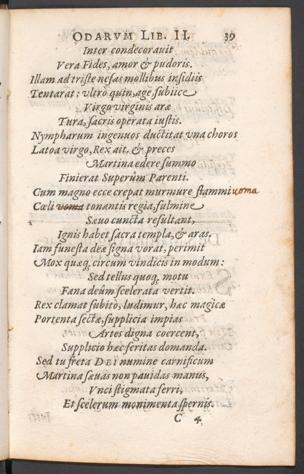 ODARVM LIB. II. 39
Inter condecorauit
Vera Fides, amor & pudoris.
Illam ad triste nefas mollibus insidiis
Tentarat: vltrò quin, age, subiice
Virgo virginis aræ
Tura, sacris operata iustis.
Nympharum ingenuos ductitat vna choros
Latoa virgo, Rex ait. & preces
Martina edere summo
Finierat Superûm Parenti.
Cum magno ecce crepat murmure flammiuoma
Cæli voma tonantis regia, fulmine
Sæuo cuncta resultant,
Ignis habet sacra templa, & aras.
Iam funesta deæ signa vorat, perimit
Mox quæq, circum vindicis in modum:
Sed tellus quoq, motu
Fana deûm scelerata vertit.
Rex clamat subitò, ludimur, hæc magicæ
Portenta sectæ, supplicia impias
Artes digna coercent,
Supplicio hæc feritas domanda.
Sed tu freta DEI numine carnificum
Martina sæuas non pauidas manus,
Vnci stigmata ferri,
Et scelerum monimenta spernis.
C 4.